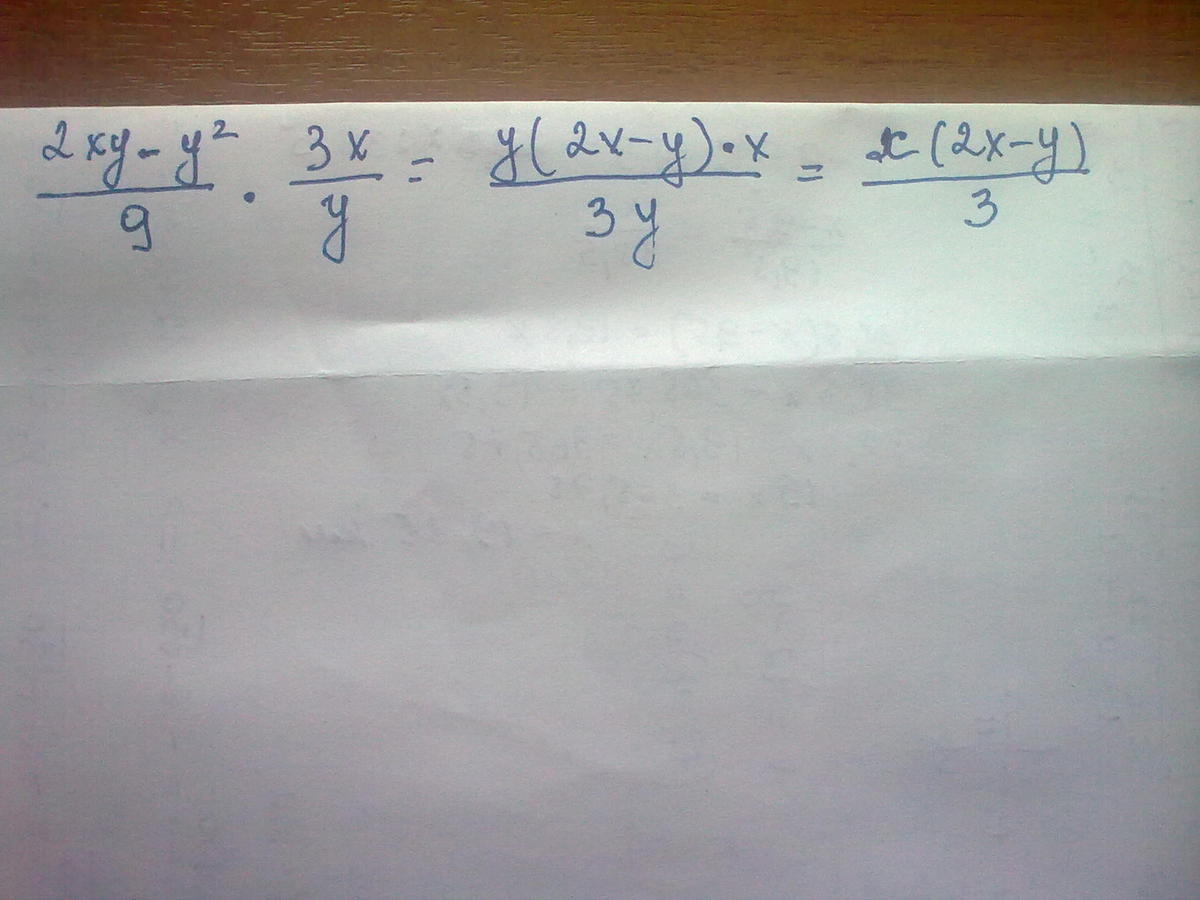 (2xy - y²)/9 · 3x/y = (y(2x-y)·x)/(3y) = (x(2x-y))/3